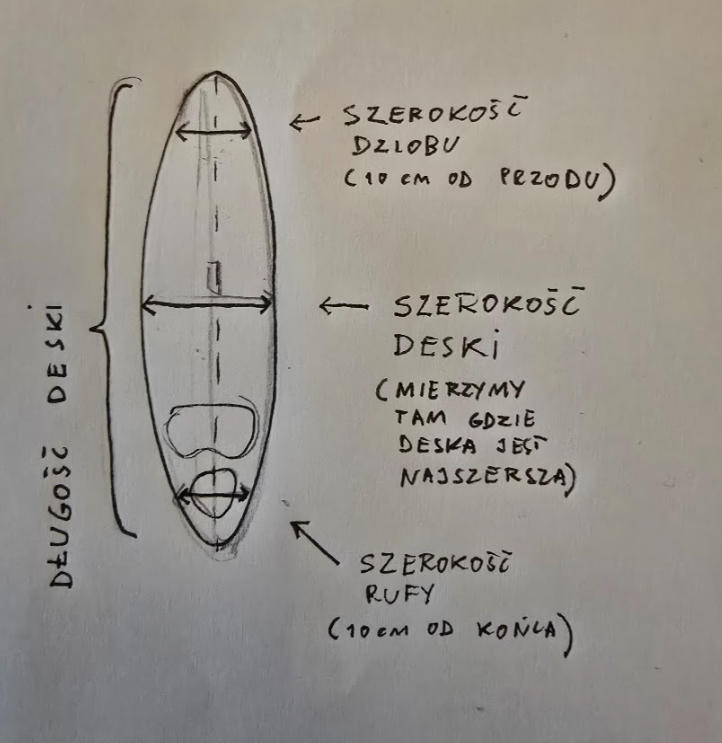 SZEROKOŚĆ
DZIOBU
(10 cm OD PRZODU)
SZEROKOŚĆ
DESKI
(MIERZYMY
TAM GDZIE
DESKA JEST
NAJSZERSZA)
SZEROKOŚĆ
RUFY
(10 cm OD KOŃCA)
DŁUGOŚĆ DESKI